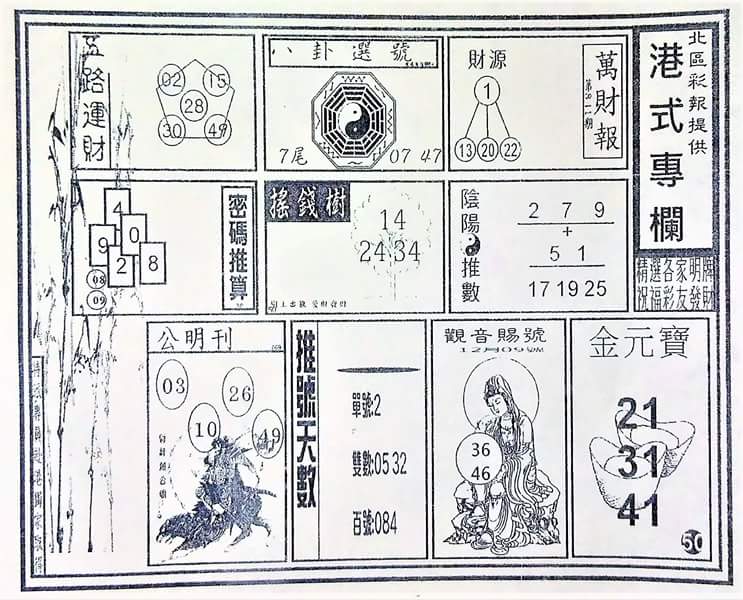 北區彩報提供
港式專欄
精選各家明牌
祝福彩友發財
萬財報
財源
1
13 20 22
八卦選號
7尾
07 47
五路運財
02 15
28
30 49
陰陽推數
2 7 9
+
5 1
17 19 25
搖錢樹
14
24 34
密碼推算
4
9 0
2 8
08
09
金元寶
21
31
41
50
觀音賜號
12月09號
36
46
推號天數
單號:2
雙數:05 32
百號:084
公明刊
03
26
10
49